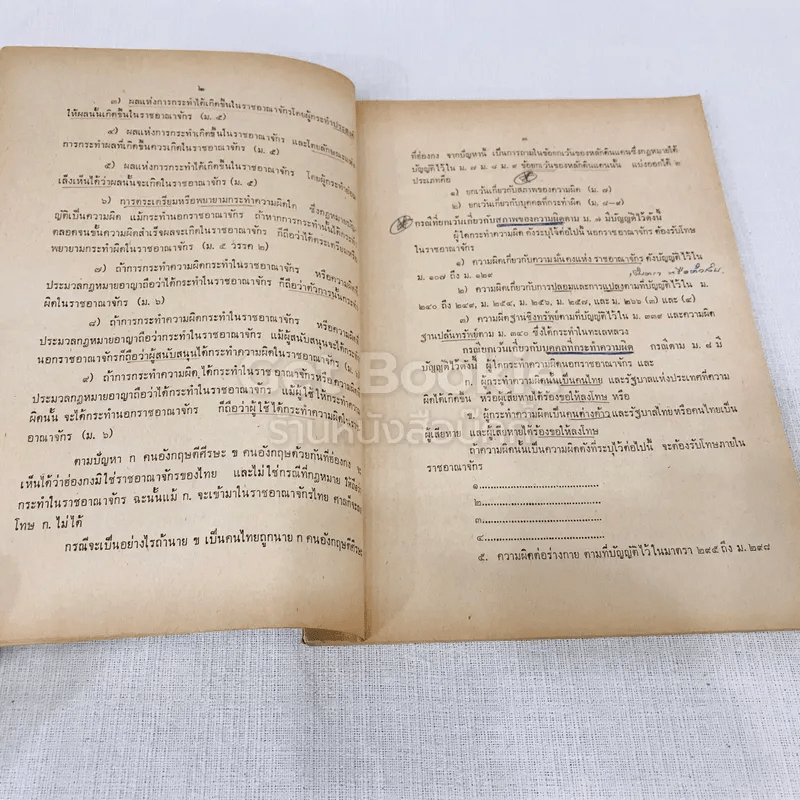 ๒
๓) ผลแห่งการกระทำได้เกิดขึ้นในราชอาณาจักรโดยผู้กระทำประสงค์
ให้ผลนั้นเกิดขึ้นในราชอาณาจักร (ม. ๕)
๔) ผลแห่งการกระทำเกิดขึ้นในราชอาณาจักร และโดยลักษณะแห่ง
การกระทำผลที่เกิดขึ้นควรเกิดในราชอาณาจักร (ม. ๕)
๕) ผลแห่งการกระทำได้เกิดขึ้นในราชอาณาจักร โดยผู้กระทำย่อม
เล็งเห็นได้ว่าผลนั้นจะเกิดในราชอาณาจักร (ม. ๕)
๖) การตระเตรียมหรือพยายามกระทำความผิดใด ซึ่งกฎหมาย
ญัติเป็นความผิด แม้กระทำนอกราชอาณาจักร ถ้าหากการกระทำนั้นได้กระทำ
ตลอดจนขั้นความผิดสำเร็จผลจะเกิดในราชอาณาจักร ก็ถือว่าได้ตระเตรียมหรือ
พยายามกระทำผิดในราชอาณาจักร (ม. ๕ วรรค ๒)
๗) ถ้าการกระทำความผิดในราชอาณาจักร หรือความผิดที่
ประมวลกฎหมายอาญาถือว่าได้กระทำในราชอาณาจักร ก็ถือว่าตัวการนั้นกระทำ
ผิดในราชอาณาจักร (ม. ๖)
๘) ถ้าการกระทำความผิดในราชอาณาจักร หรือความผิดที่
ประมวลกฎหมายอาญาถือว่ากระทำในราชอาณาจักร แม้ผู้สนับสนุนจะได้กระทำ
นอกราชอาณาจักรก็ถือว่าผู้สนับสนุนได้กระทำความผิดในราชอาณาจักร (ม.
๙) ถ้าการกระทำความผิด ได้กระทำในราชอาณาจักรหรือความผิด
ประมวลกฎหมายอาญาถือว่าได้กระทำในราชอาณาจักร แม้ผู้ใช้ให้กระทำ
ผิดนั้น จะได้กระทำนอกราชอาณาจักร ก็ถือว่าผู้ใช้ได้กระทำความผิดในราช
อาณาจักร (ม. ๖)
ตามปัญหา ก คนอังกฤษตีศีรษะ ข คนอังกฤษด้วยกันที่ฮ่องกง
เห็นได้ว่าฮ่องกงมิใช่ราชอาณาจักรของไทย และไม่ใช่กรณีที่กฎหมาย ให้ถือว่า
กระทำในราชอาณาจักร ฉะนั้นแม้ ก. จะเข้ามาในราชอาณาจักรไทย ศาลก็จะลง
โทษ ก. ไม่ได้
กรณีจะเป็นอย่างไรถ้านาย ข เป็นคนไทยถูกนาย ก คนอังกฤษตีศีรษะ
๓
ที่ฮ่องกง จากปัญหานี้ เป็นการถามในข้อยกเว้นของหลักดินแดนซึ่งกฎหมายได้
บัญญัติไว้ใน ม. ๗ ม. ๘ ม. ๙ ข้อยกเว้นของหลักดินแดนนั้น แบ่งออกได้ ๒
ประเภทคือ
๑) ยกเว้นเกี่ยวกับสภาพของความผิด (ม. ๗)
๒) ยกเว้นเกี่ยวกับบุคคลที่กระทำผิด (ม. ๘-๙)
กรณีที่ยกเว้นเกี่ยวกับสภาพของความผิดตาม ม. ๘ มีบัญญัติไว้ดังนี้
ผู้ใดกระทำความผิด ดังระบุไว้ต่อไปนี้ นอกราชอาณาจักร ต้องรับโทษ
ในราชอาณาจักร
๑) ความผิดเกี่ยวกับความมั่นคงแห่ง ราชอาณาจักร ดังบัญญัติไว้ใน
ม. ๑๐๗ ถึง ม. ๑๒๙
๒) ความผิดเกี่ยวกับการปลอมและการแปลงตามที่บัญญัติไว้ใน ม.
๒๔๐ ถึง ๒๔๙, ม. ๒๕๔, ม. ๒๕๖, ม. ๒๕๗, และ ม. ๒๖๖ (๓) และ (๔)
๓) ความผิดฐานชิงทรัพย์ตามที่บัญญัติไว้ใน ม. ๓๓๙ และความผิด
ฐานปล้นทรัพย์ตาม ม. ๓๔๐ ซึ่งได้กระทำในทะเลหลวง
กรณียกเว้นเกี่ยวกับบุคคลที่กระทำความผิด กรณีตาม ม. ๘ มี
บัญญัติไว้ดังนี้ ผู้ใดกระทำความผิดนอกราชอาณาจักร และ
ก. ผู้กระทำความผิดนั้นเป็นคนไทย และรัฐบาลแห่งประเทศที่ความ
ผิดได้เกิดขึ้น หรือผู้เสียหายได้ร้องขอให้ลงโทษ หรือ
ข. ผู้กระทำความผิดเป็นคนต่างด้าว และรัฐบาลไทยหรือคนไทยเป็น
ผู้เสียหาย และผู้เสียหายได้ร้องขอให้ลงโทษ
ถ้าความผิดนั้นเป็นความผิดดังที่ระบุไว้ต่อไปนี้ จะต้องรับโทษภายใน
ราชอาณาจักร
๑..............................
๒..............................
๓..............................
๔..............................
๕. ความผิดต่อร่างกาย ตามที่บัญญัติไว้ในมาตรา ๒๙๕ ถึง ม. ๒๙๘